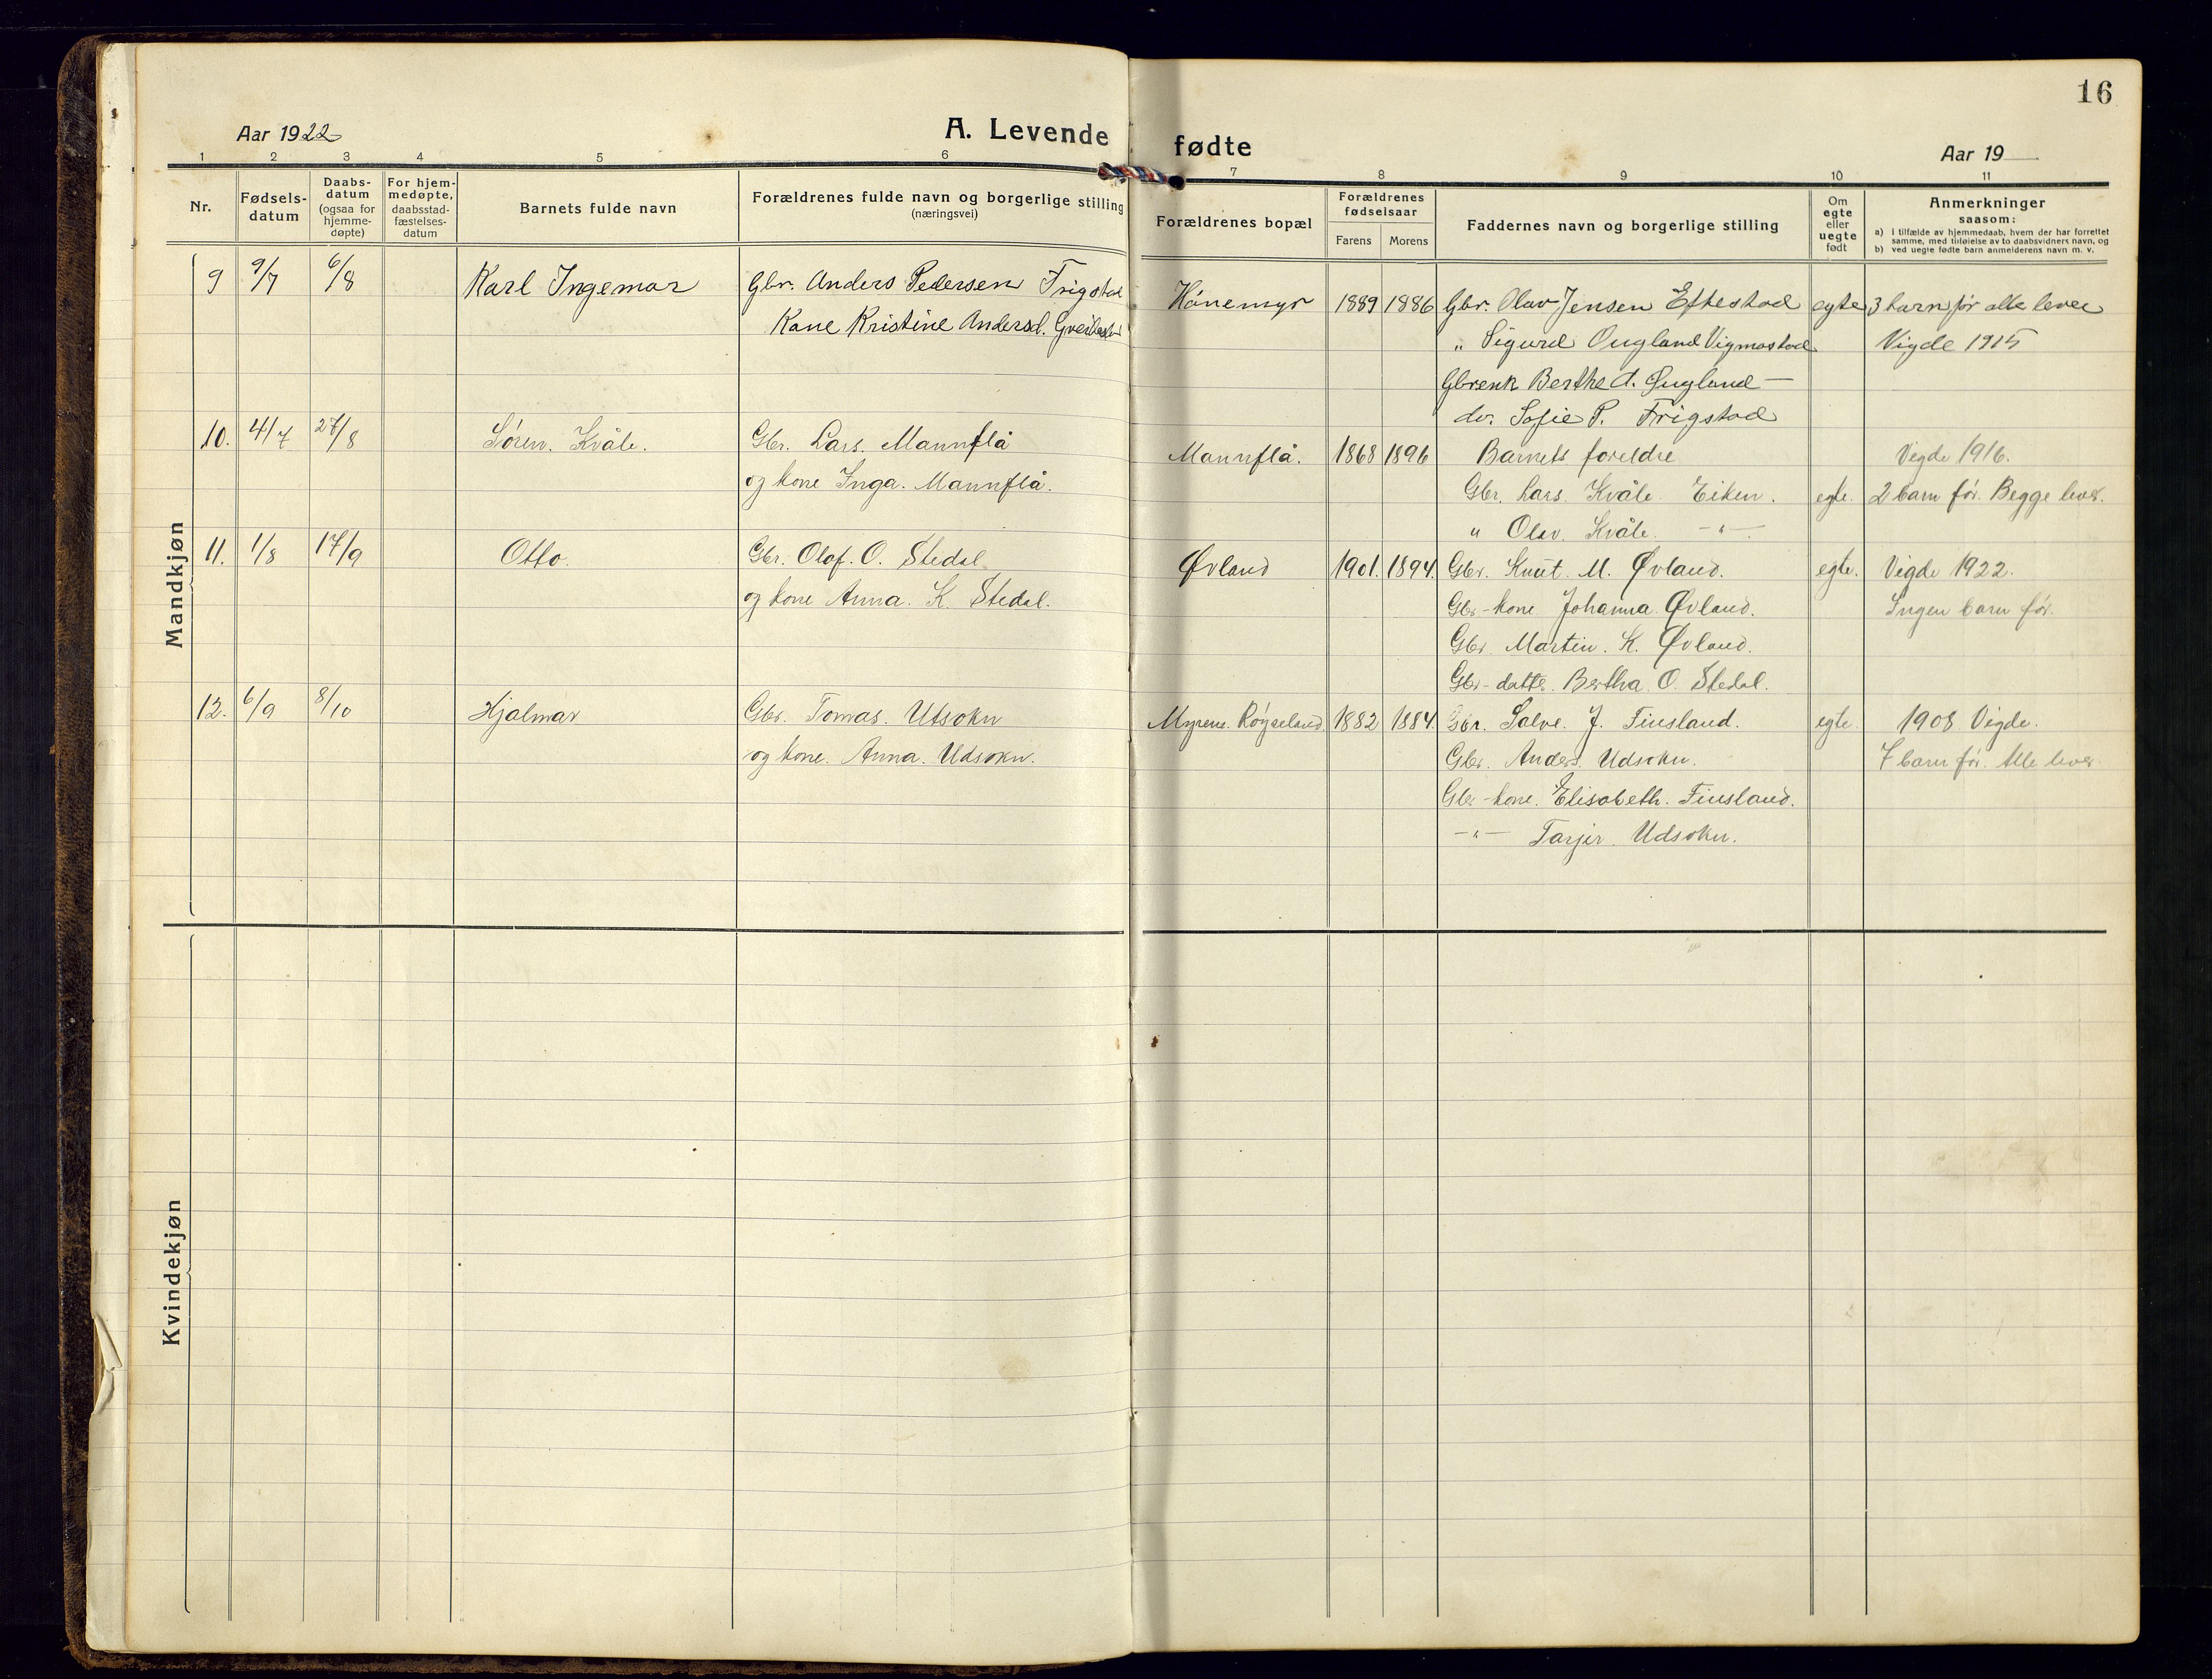 16
Aar 1922
A. Levende fødte
Aar 19
1 2 3 4 5 6 7 8 9 10 11
Nr.
Fødsels-
datum
Daabs-
datum
(ogsaa for
hjemme-
døpte)
For hjem-
medøpte,
daabsstad-
fæstelses-
datum
Barnets fulde navn
Forældrenes fulde navn og borgerlige stilling
(næringsvei)
Forældrenes bopæl
Forældrenes
fødselsaar
Farens Morens
Faddernes navn og borgerlige stilling
Om
egte
eller
uegte
født
Anmerkninger
saasom:
a) I tilfælde av hjemmedaab, hvem der har forrettet
samme, med tilføielse av to daabsvidners navn, og
b) ved uegte fødte barn anmelderens navn m. v.
Mandkjøn
9 9/7 6/8 Karl Ingemar Gbr. Anders Pedersen Frigstad Hönemyr 1889 1886 Gbr. Olav Jensen Eftestad egte 3 barn før alle lever
Kone Kristine Andersd. „ Sigurd Ougland Vigmostad Vigde 1915
Gbrenk Berthe A. Ougland —
do. Sofie P. Frigstad
10. 4/7 27/8 Søren. Kvåle. Gbr. Lars. Mannflå Mannflå. 1868 1896 Barnets foreldre Vigde 1916.
og kone Inga. Mannflå. Gbr. Lars. Kvåle. Eiken. egte. 2 barn før. Begge lever.
„ Olav. Kvåle. —„—
11. 1/8 17/9 Otto. Gbr. Olaf. O. Stedal Øvland 1901. 1894. Gbr. Knut. M. Øvland. egte. Vigde 1922.
og kone Anna. K. Stedal. Gbr-kone Johanna Øvland. Ingen barn før.
Gbr. Martin. K. Øvland.
Gbr-datter. Bertha. O. Stedal.
12. 6/9 8/10 Hjalmar Gbr. Tomas. Utsokn Myrene. Røyseland. 1882 1884. Gbr. Salve. J. Finsland. egte. 1908 Vigde.
og kone. Anna. Udsokn. Gbr. Anders. Udsokn. 7 barn før. Alle lever.
Gbr-kone. Elisabeth. Finsland.
—„— Tarjer. Udsokn.
Kvindekjøn